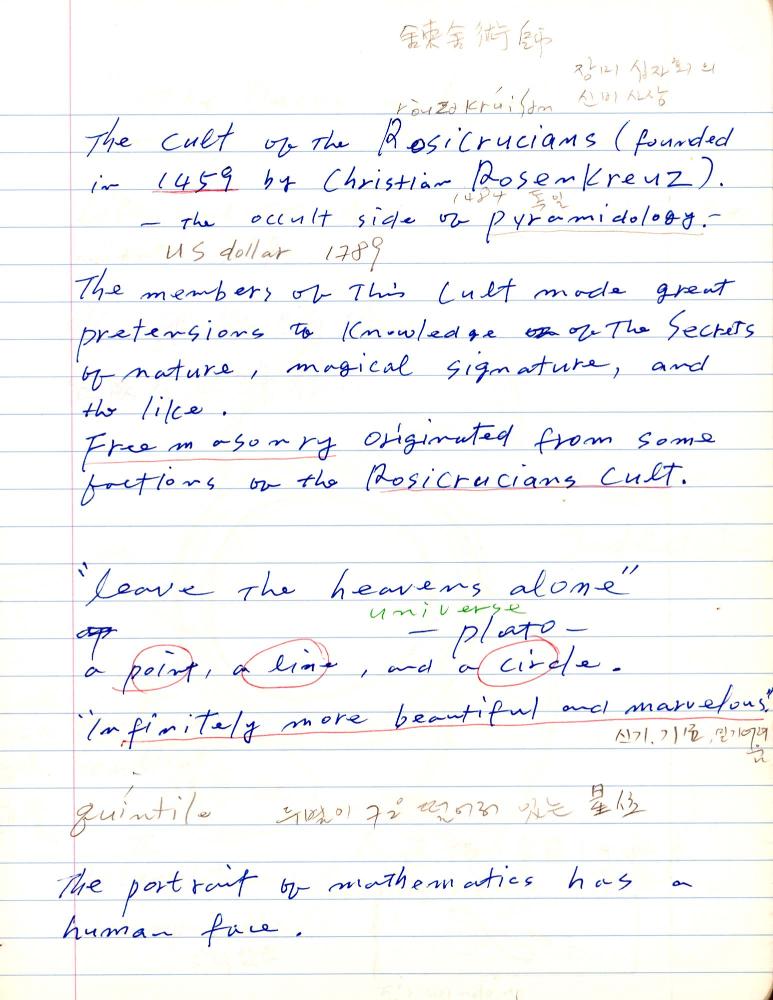 鍊金術師
장미 십자회의
신비사상
The Cult of the Rosicrucians (founded
in 1459 by Christian Rosenkreuz).
1484 독일
— The occult side of pyramidology.—
US dollar 1789
The members of This Cult made great
pretensions to Knowledge of The Secrets
of nature, magical signature, and
the like.
Freemasonry originated from some
factions of the Rosicrucians Cult.
"leave The heavens alone"
universe
— plato —
a point, a line, and a circle.
"Infinitely more beautiful and marvelous"
신기, 기묘, 믿기어려
운
quintile 두별이 72° 떨어져 있는 星位
The portrait of mathematics has a
human face.